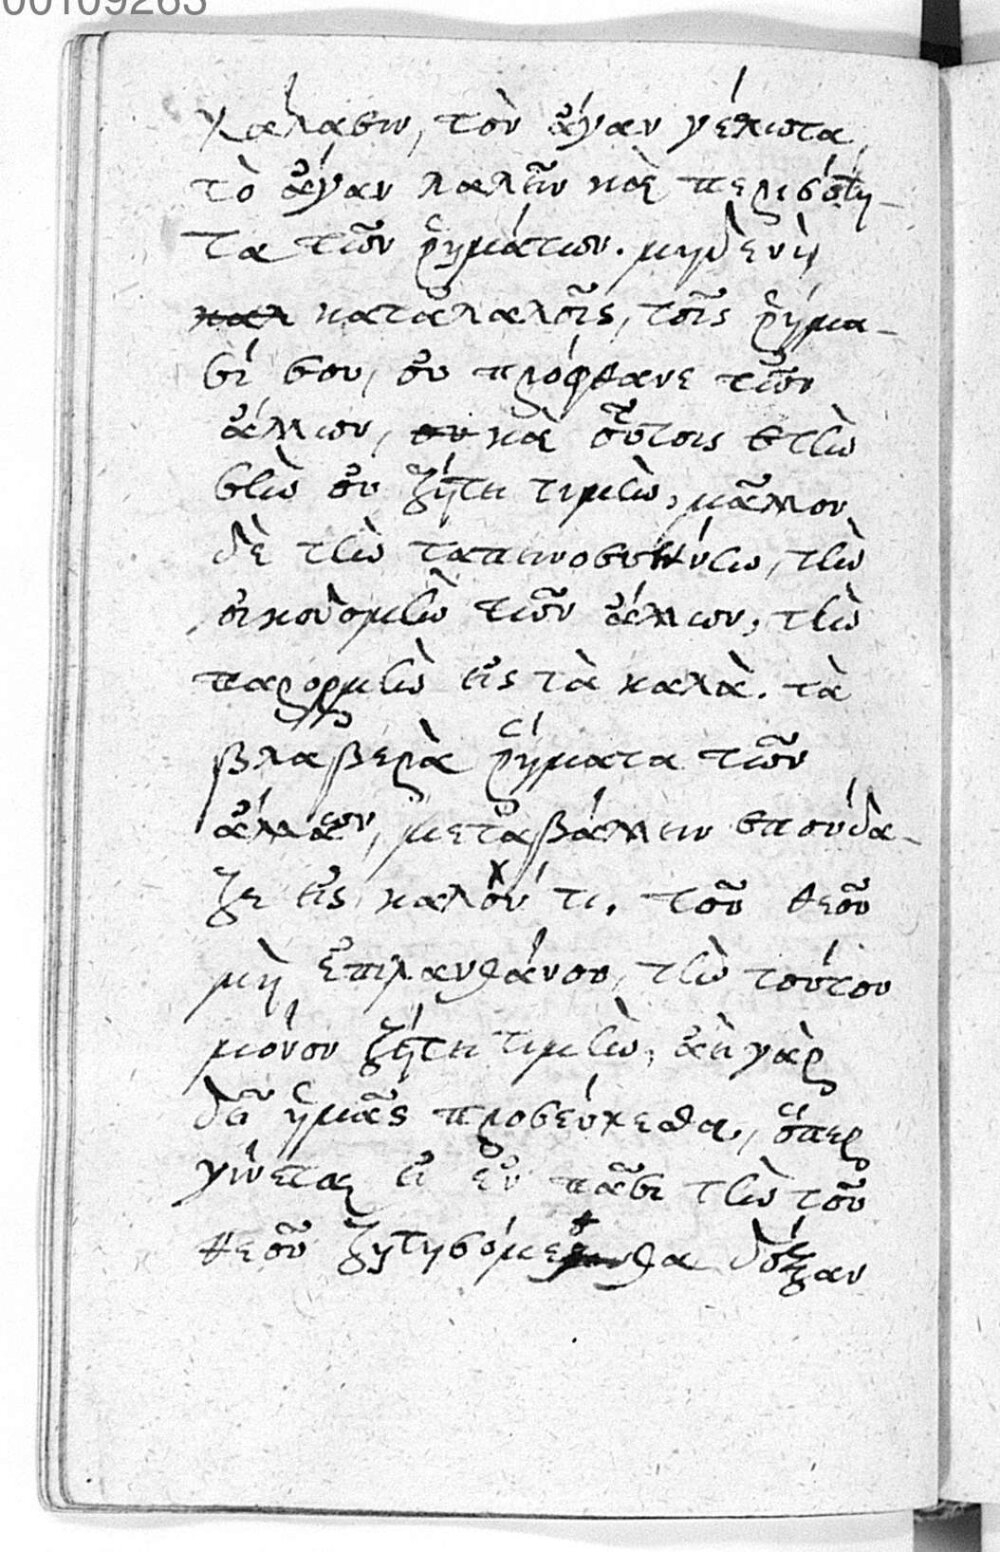 00109263
χαλάσιν, τὸν ἄγαν γέλωτα,
τὸ ἄγαν λαλεῖν καὶ περισότη-
τα τῶν ῥημάτων. μηδενὶ
καταλαλοῖς, τοῖς ῥήμα-
σί σου, οὐ πρόφθανε τῶν
ἄλλων, καὶ οὕτοις
σὴν οὐ ζήτει τιμὴν, μᾶλλον
δὲ τὴν ταπεινοσύνην, τὴν
οἰκοδομὴν τῶν ἄλλων, τὴν
παρορμὴν εἰς τὰ καλὰ. τὰ
βλαβερὰ ῥήματα τῶν
ἄλλων, μεταβάλλειν σπούδα-
ζε εἰς καλόν τι. τοῦ θεοῦ
μὴ ἐπιλανθάνου, τὴν τούτου
μόνον ζήτει τιμὴν, ἀεὶ γὰρ
δεῖ ἡμᾶς προσεύχεσθαι, ὅπερ
γίνεται εἰ ἐν πᾶσι τὴν τοῦ
θεοῦ ζητησόμεθα δόξαν